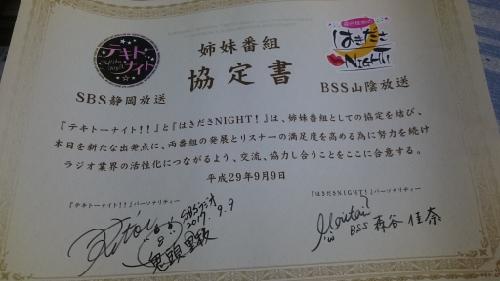 テキトーナイト
姉妹番組
協定書
森谷佳奈の
はきださ
NIGHT!
SBS静岡放送
BSS山陰放送
『テキトーナイト!!』と『はきださNIGHT!』は、姉妹番組としての協定を結び、
本日を新たな出発点に、両番組の発展とリスナーの満足度を高める為に努力を続け
ラジオ業界の活性化につながるよう、交流、協力し合うことをここに合意する。
平成29年9月9日
『テキトーナイト!!』パーソナリティー
『はきださNIGHT!』パーソナリティー
SBSラジオ
2017.9.9
鬼頭里枝
BSS 森谷佳奈